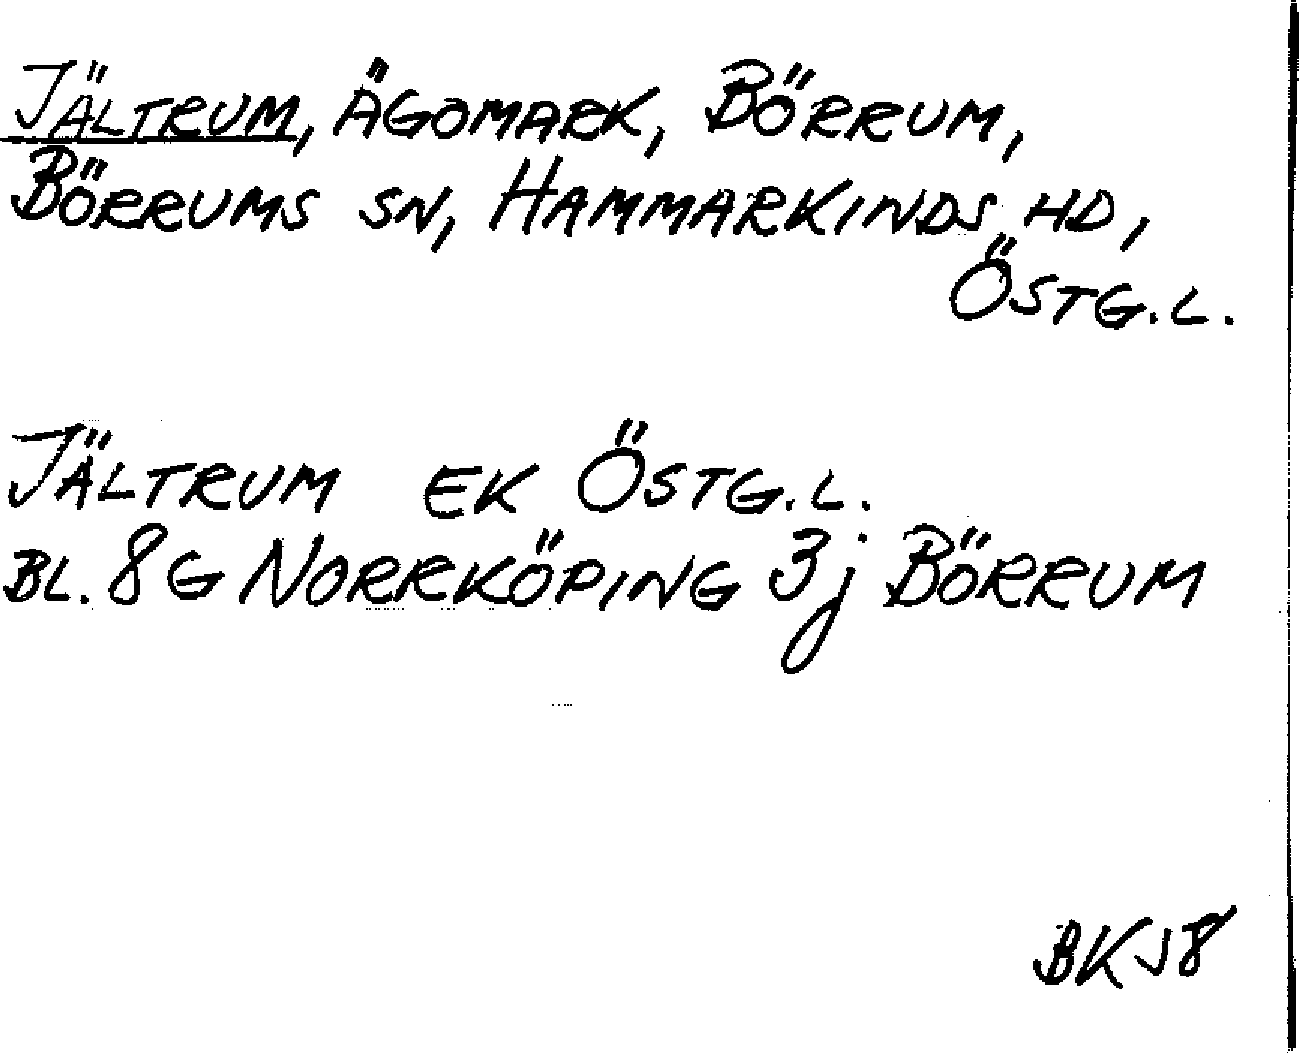 JÄLTRUM, ÄGOMARK, BÖRRUM,
BÖRRUMS SN, HAMMARKINDS HD,
ÖSTG.L.
JÄLTRUM EK ÖSTG.L.
BL. 8G NORRKÖPING 3j BÖRRUM
BKJ8